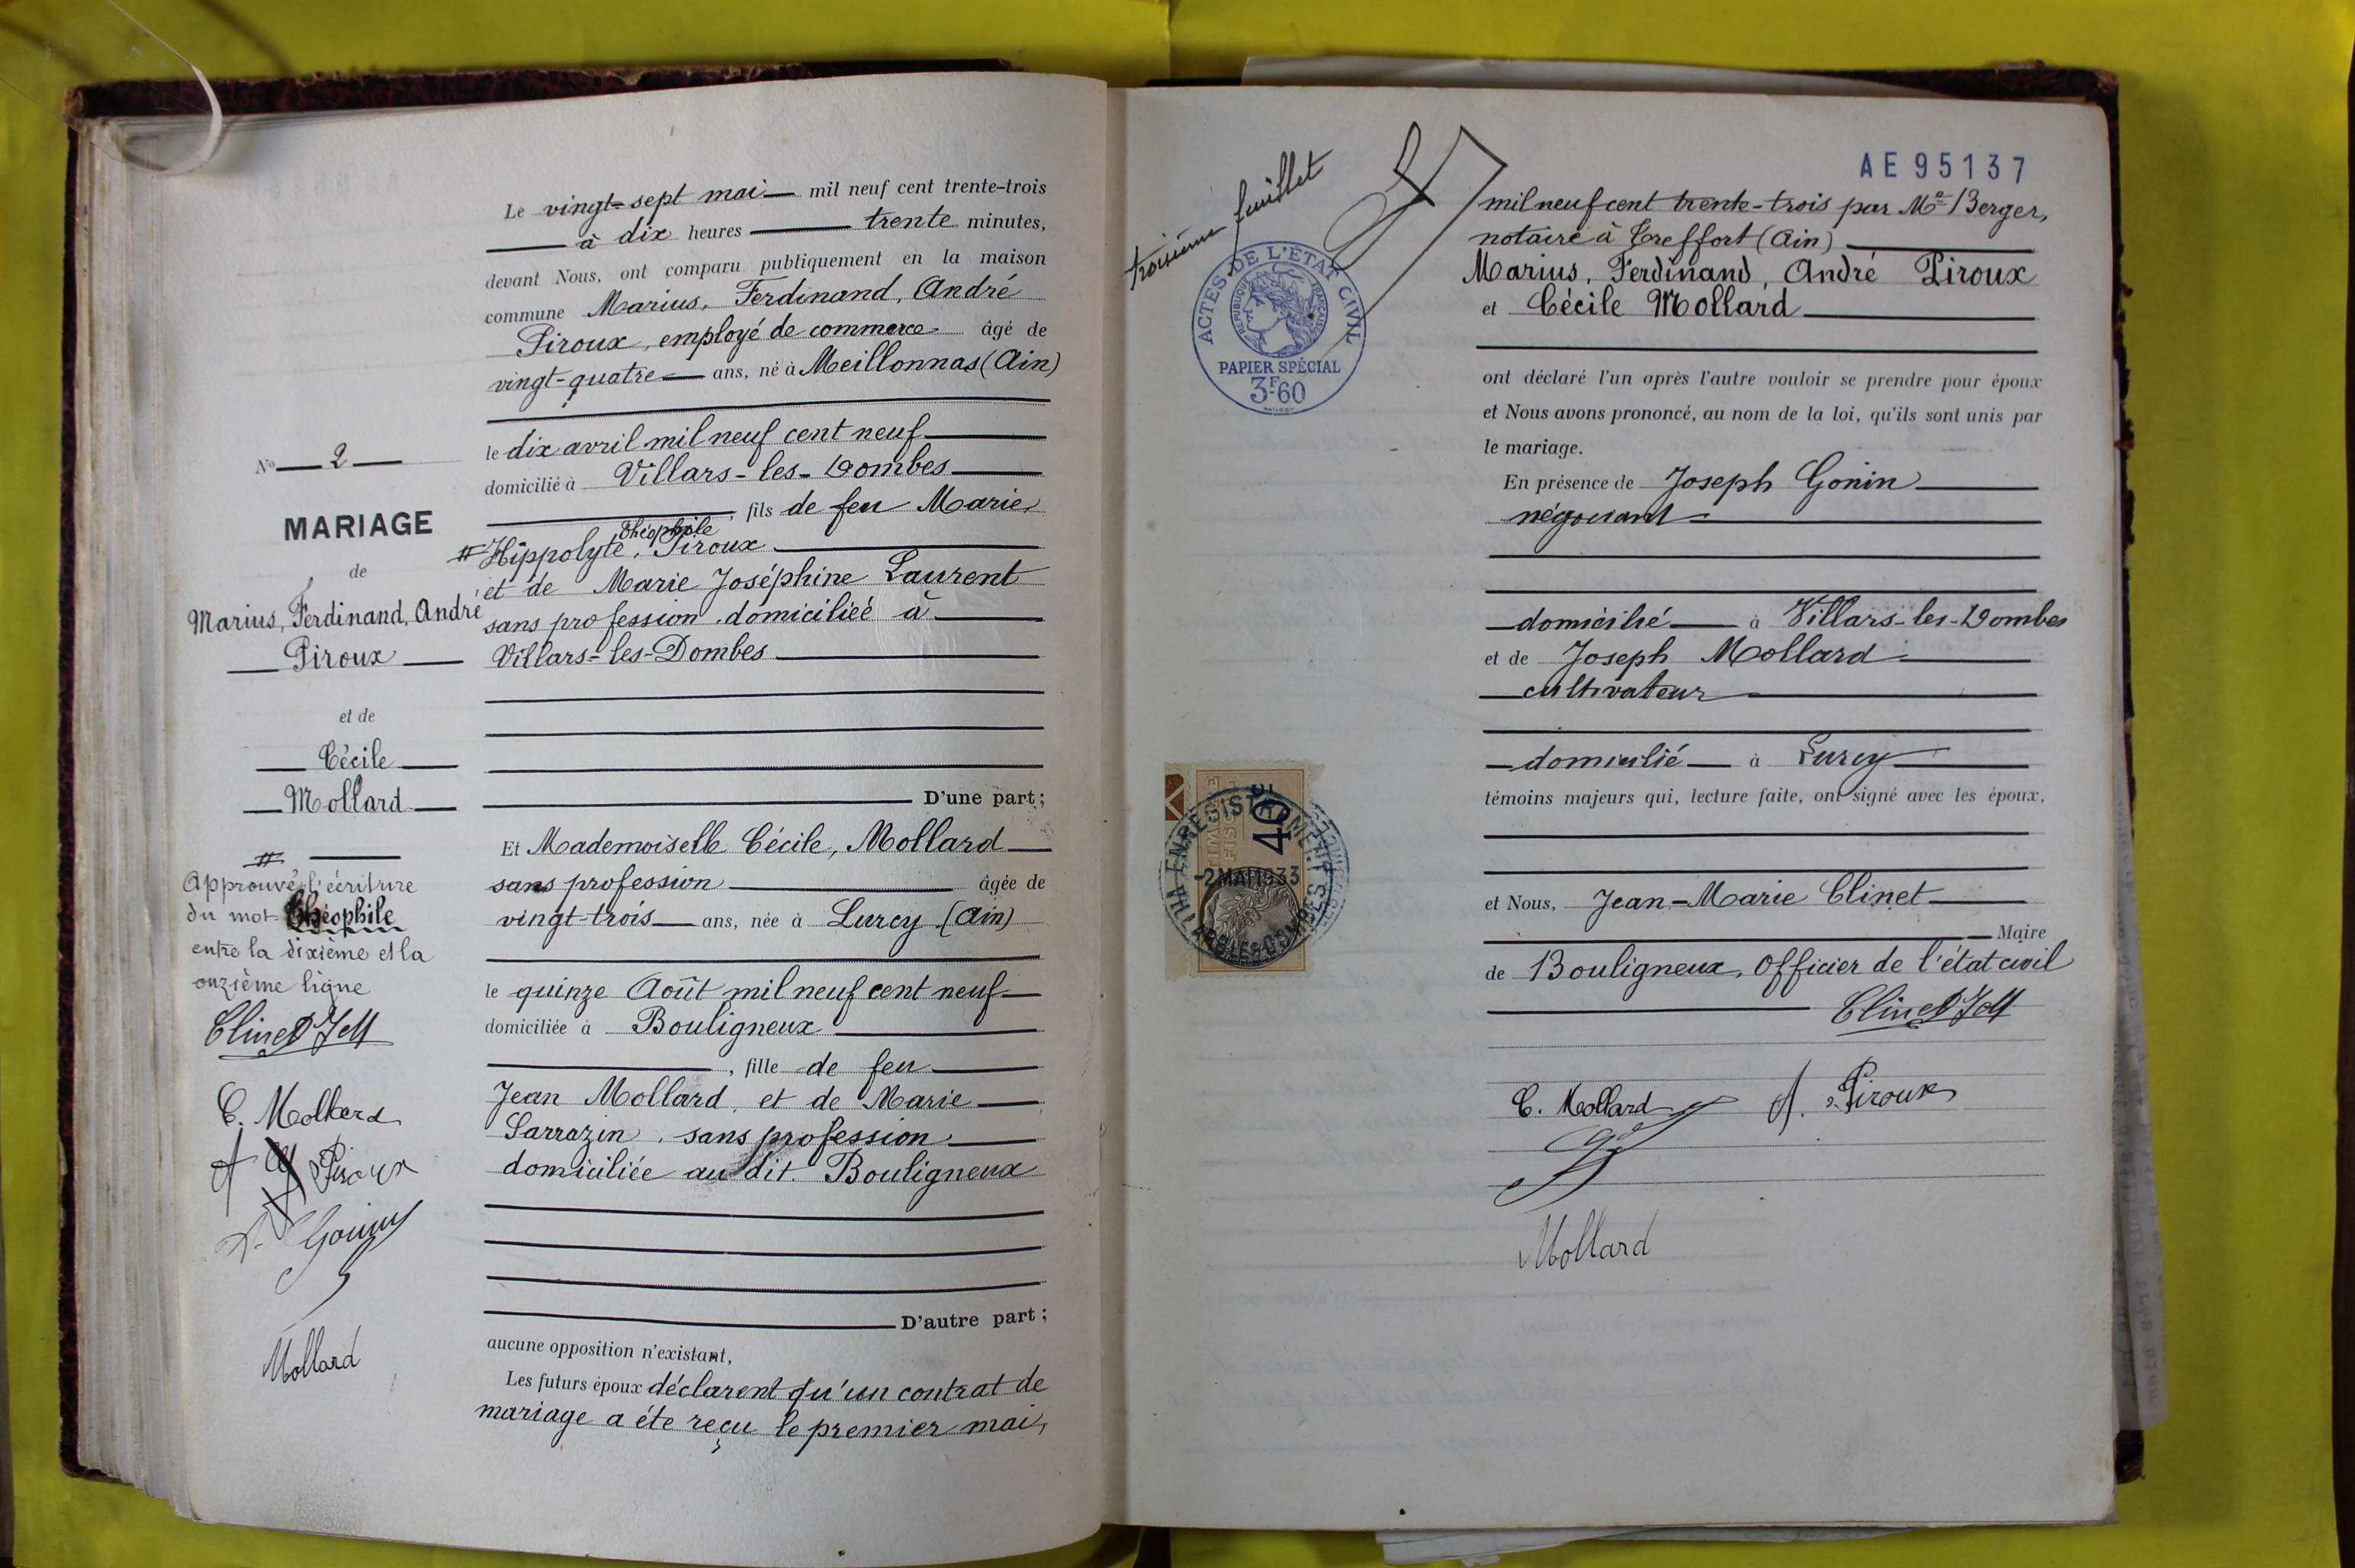 N° 2
MARIAGE
de
Marius, Ferdinand, André
Piroux
et de
Cécile
Mollard
#
Approuvé l'écriture
du mot Théophile
entre la dixième et la
onzième ligne
Clinet J M
C. Mollard
A Piroux
Gonin
Mollard
Le vingt-sept mai mil neuf cent trente-trois
à dix heures trente minutes,
devant Nous, ont comparu publiquement en la maison
commune Marius, Ferdinand, André
Piroux, employé de commerce âgé de
vingt-quatre ans, né à Meillonnas (Ain)
le dix avril mil neuf cent neuf
domicilié à Villars-les-Dombes
, fils de feu Marie
Théophile
# Hippolyte, Piroux
et de Marie Joséphine Laurent
sans profession, domiciliée à
Villars-les-Dombes
D'une part;
Et Mademoiselle Cécile, Mollard
sans profession âgée de
vingt-trois ans, née à Lurcy (Ain)
le quinze Août mil neuf cent neuf
domiciliée à Bouligneux
, fille de feu
Jean Mollard, et de Marie
Sarrazin, sans profession
domiciliée au dit. Bouligneux
D'autre part;
aucune opposition n'existant,
Les futurs époux déclarent qu'un contrat de
mariage a éte reçu le premier mai,
troisième feuillet
ACTES DE L'ETAT CIVIL
REPUBLIQUE FRANÇAISE
PAPIER SPÉCIAL
3F60
AE95137
mil neuf cent trente-trois par Me Berger,
notaire à Treffort (Ain)
Marius, Ferdinand, André Piroux
et Cécile Mollard
ont déclaré l'un après l'autre vouloir se prendre pour époux
et Nous avons prononcé, au nom de la loi, qu'ils sont unis par
le mariage.
En présence de Joseph Gonin
négociant
domicilié à Villars-les-Dombes
et de Joseph Mollard
cultivateur
domicilié à Lurcy
témoins majeurs qui, lecture faite, ont signé avec les époux,
ENREGISTREMENT
40
2 MAI 1933
et Nous, Jean-Marie Clinet
Maire
de Bouligneux, Officier de l'état civil
Clinet J M
C. Mollard A. Piroux
Mollard